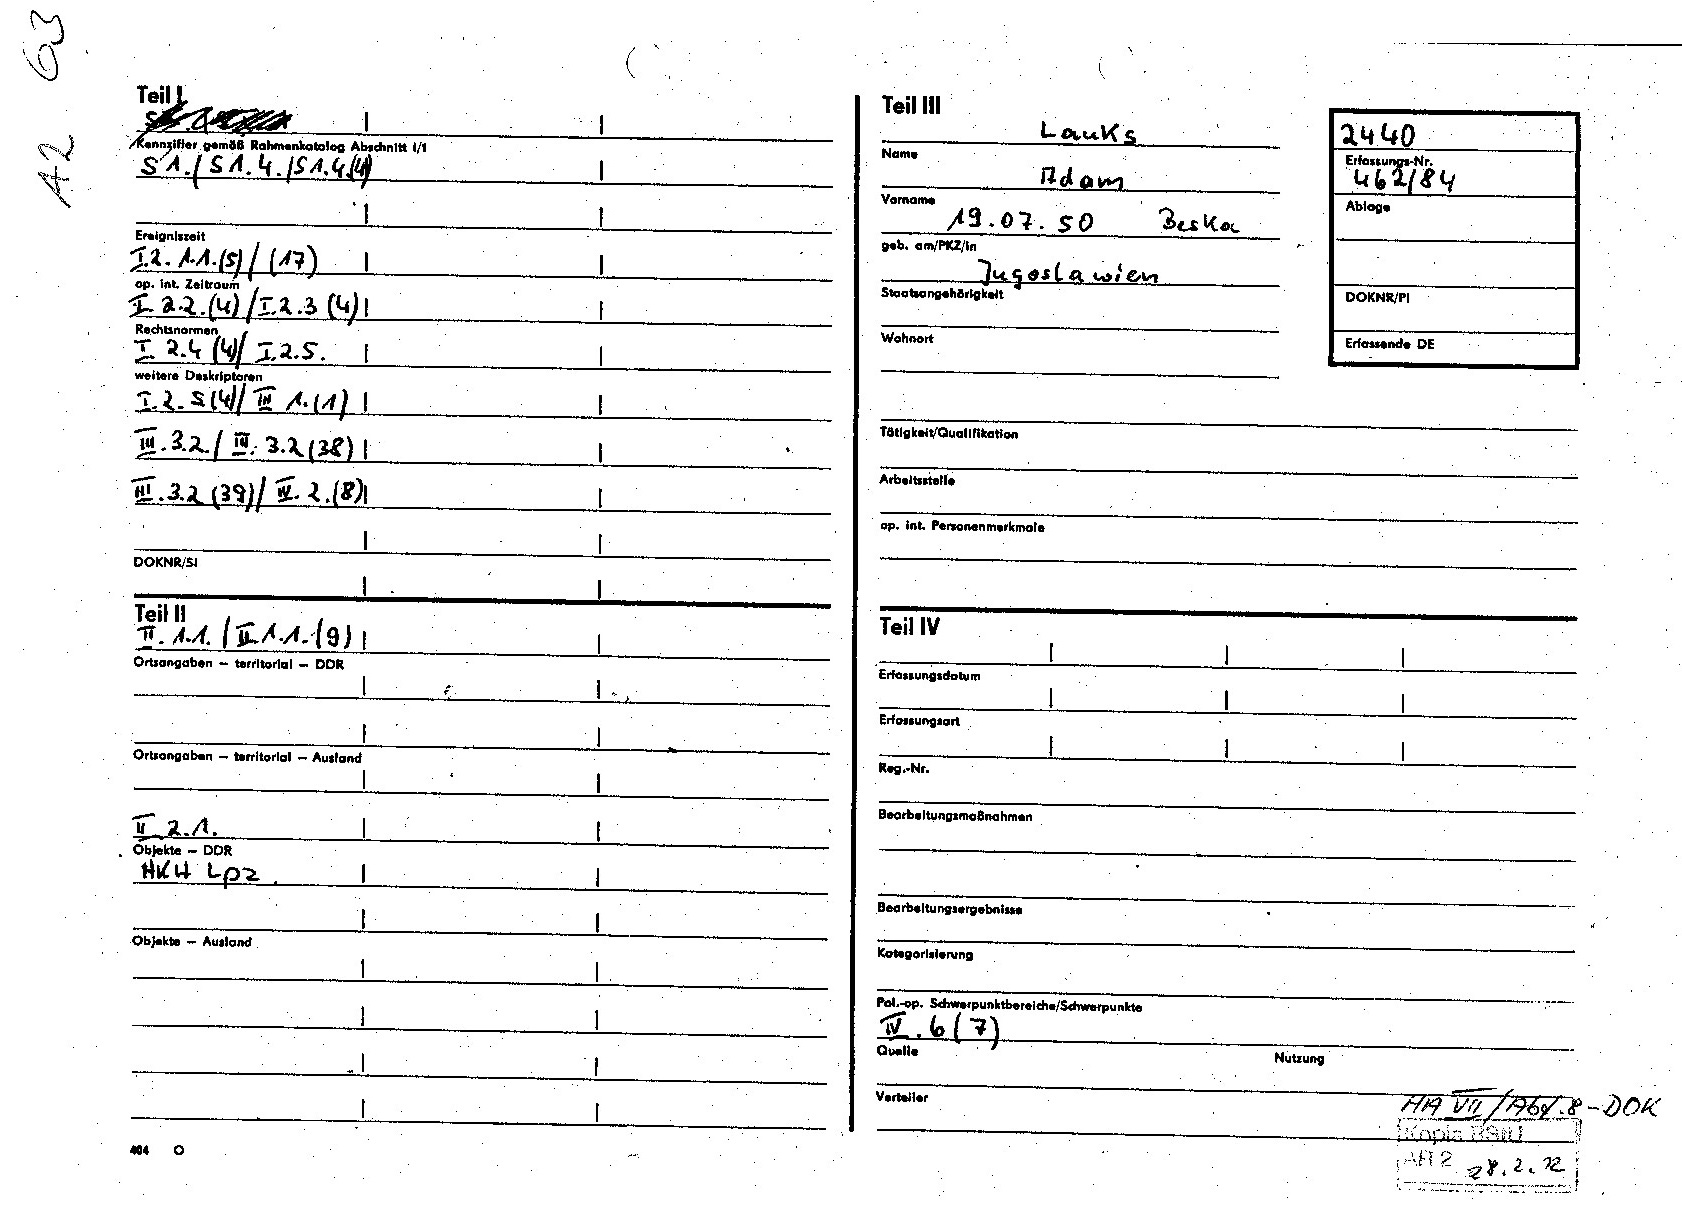 A2 63
Teil I
Kennziffer gemäß Rahmenkatalog Abschnitt I/1
S1./S1.4./S1.4.(4)
Ereigniszeit
I.2. 1.1.(5)/(17)
op. int. Zeitraum
I 2.2.(4)/I.2.3(4)
Rechtsnormen
I 2.4(4)/ I.2.5.
weitere Deskriptoren
I.2.5(4)/ III 1.(1)
III.3.2./ III. 3.2(38)
III.3.2(39)/ IV. 2.(8)
DOKNR/SI
Teil II
II. 1.1. / II 1.1.(9)
Ortsangaben – territorial – DDR
Ortsangaben – territorial – Ausland
II 2.1.
Objekte – DDR
HKH Lpz.
Objekte – Ausland
404 O
Teil III
Lauks
Name
Adam
Vorname
19.07.50 Beska
geb. am/PKZ/in
Jugoslawien
Staatsangehörigkeit
Wohnort
Tätigkeit/Qualifikation
Arbeitsstelle
op. int. Personenmerkmale
2440
Erfassungs-Nr.
462/84
Ablage
DOKNR/PI
Erfassende DE
Teil IV
Erfassungsdatum
Erfassungsart
Reg.-Nr.
Bearbeitungsmaßnahmen
Bearbeitungsergebnisse
Kategorisierung
Pol.-op. Schwerpunktbereiche/Schwerpunkte
IV.6(7)
Quelle Nutzung
Verteiler
HA VII/Abt.8-DOK
Kopie BStU
AR 2 28.2.12